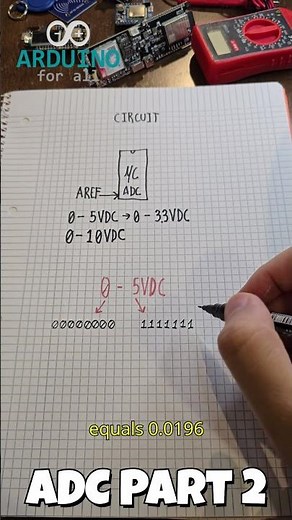 ARDUINO
for all
CIRCUIT
μC
ADC
AREF
0-5VDC→0-3.3VDC
0-10VDC
0 - 5VDC
00000000 1111111
equals 0.0196
ADC PART 2